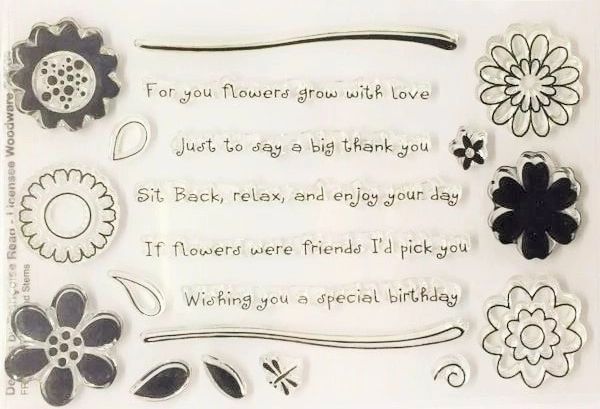 For you flowers grow with love
Just to say a big thank you
Sit Back, relax, and enjoy your day
If flowers were friends I'd pick you
Wishing you a special birthday
Read - Licensee Woodware
Stems